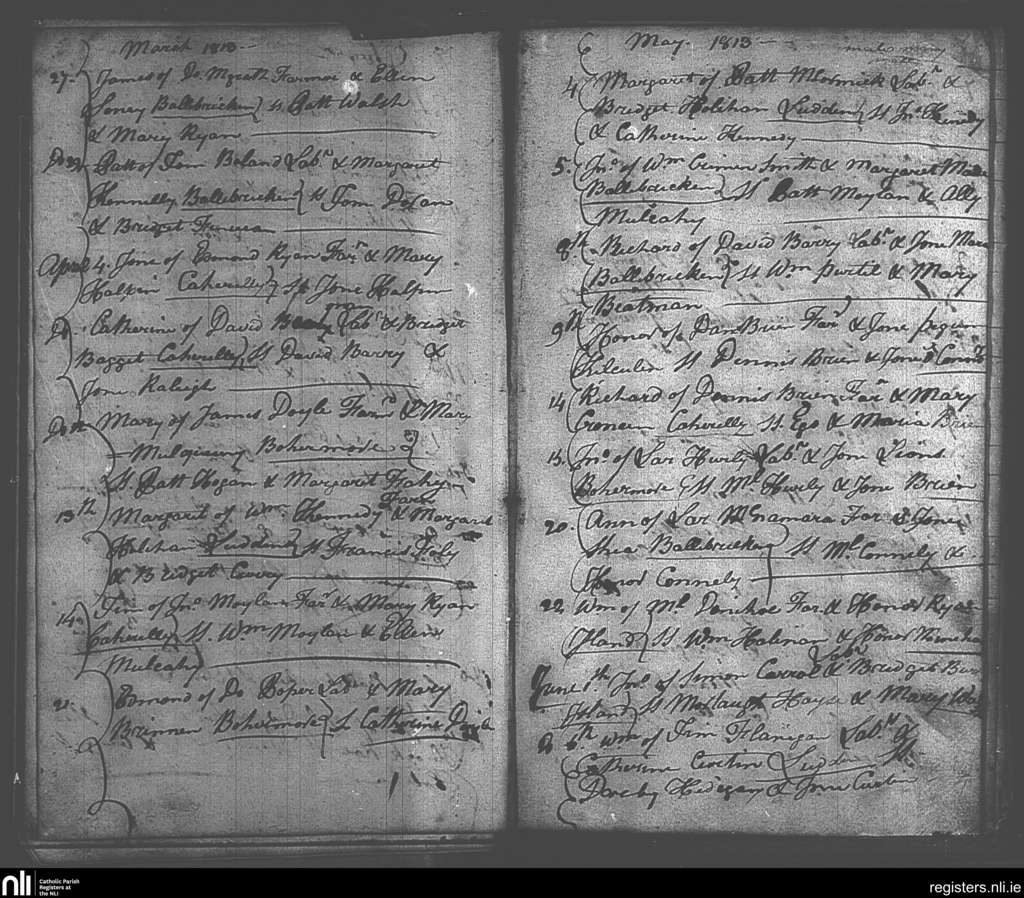 March 1813
27 James of Do. Mgrath Farmer & Ellin
Toney Ballebricken } Ss Patt Walsh
& Mary Ryan
Do Patt of Tom Boland Labr. & Margaret
Kennelly Ballebricken } Ss Tom Dolan
& Bridget
April 4. Jone of Edmond Ryan Farr & Mary
Halpin Caherelly } Ss Jone Halpin
Do Catherine of David Labr & Bridget
Bagget Caherelly } Ss David Barry &
Jone Raleigh
Do Mary of James Doyle Farr & Mary
Mulqueeny Bohermore
Ss Patt Hogan & Margaret Fahy
13th Margaret of Wm. Kennedy Farr & Margaret
Holihan Ludden } Ss Francis Foly
& Bridget
14 Tim of Jno Moylan Farr & Mary Ryan
Caherelly } Ss. Wm Moylan & Ellen
Muleahy
21 Edmond of Do Labr & Mary
Brinnen Bohermore } Ss Catherine
May 1813
4 Margaret of Patt McCormick Labr &
Bridget Holihan Ludden } Ss Jno Kennedy
& Catherine Kennedy
5. Jno of Wm Smith & Margaret
Ballebricken } Ss Patt Moylan & Ally
Muleahy
8th Richard of David Barry Labr & Jone
Ballebricken } Ss Wm Purtil & Mary
Beatman
9th Honor of Dan Brien Farr & Jone
Kilculen Ss Dennis Brien & Jone
14 Richard of Dennis Brien Farr & Mary
Cronein Caherelly Ss Ego & Maria Brien
15. Jno of Lar Hurly Labr & Jone Lions
Bohermore Ss Ml Hurly & Jone Brien
20. Ann of Lar McNamara Far & Jone
Shea Ballebricken } Ss Ml Connely &
Honor Connely
22 Wm of Ml Donohoe Far & Honor Ryan
Island } Ss Wm Halinan & Honor
June 1th Jno of Simon Carrol Labr & Bridget
Island } Ss Mortaugh Hayse & Mary
Do 6th Wm of Jim Flanigan Labr &
Catherine Curtin Ludden Ss
Darby & Jone Curtin
nli
Catholic Parish
Registers at
the NLI
registers.nli.ie